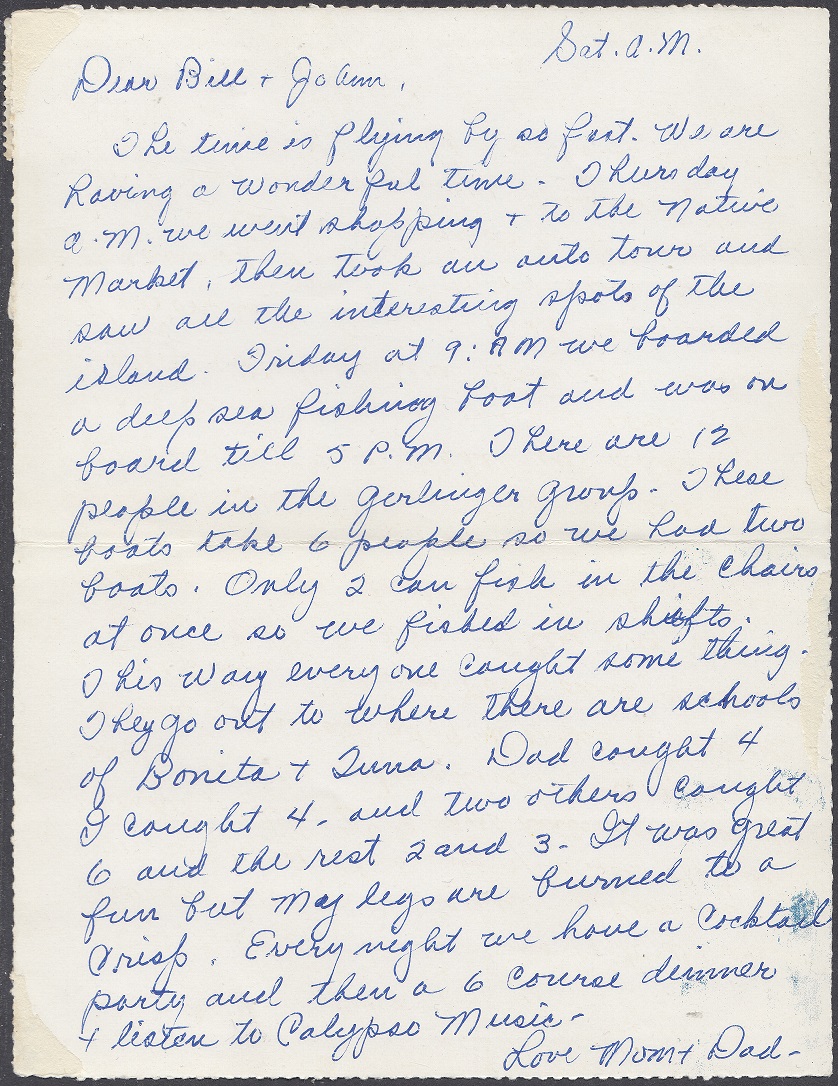 Sat. A.M.
Dear Bill + JoAnn,
The time is flying by so fast. We are
having a wonderful time - Thursday
A.M. we went shopping + to the Native
Market, then took an auto tour and
saw all the interesting spots of the
island. Friday at 9: AM we boarded
a deep sea fishing boat and was on
board till 5 P.M. There are 12
people in the Gerlinger Group - These
boats take 6 people so we had two
boats. Only 2 can fish in the chairs
at once so we fished in shifts.
This way everyone caught some thing.
They go out to where there are schools
of Bonita + Tuna. Dad caught 4
I caught 4 - and two others caught
6 and the rest 2 and 3 - It was great
fun but my legs are burned to a
crisp. Every night we have a cocktail
party and then a 6 course dinner
+ listen to Calypso Music -
Love Mom + Dad -